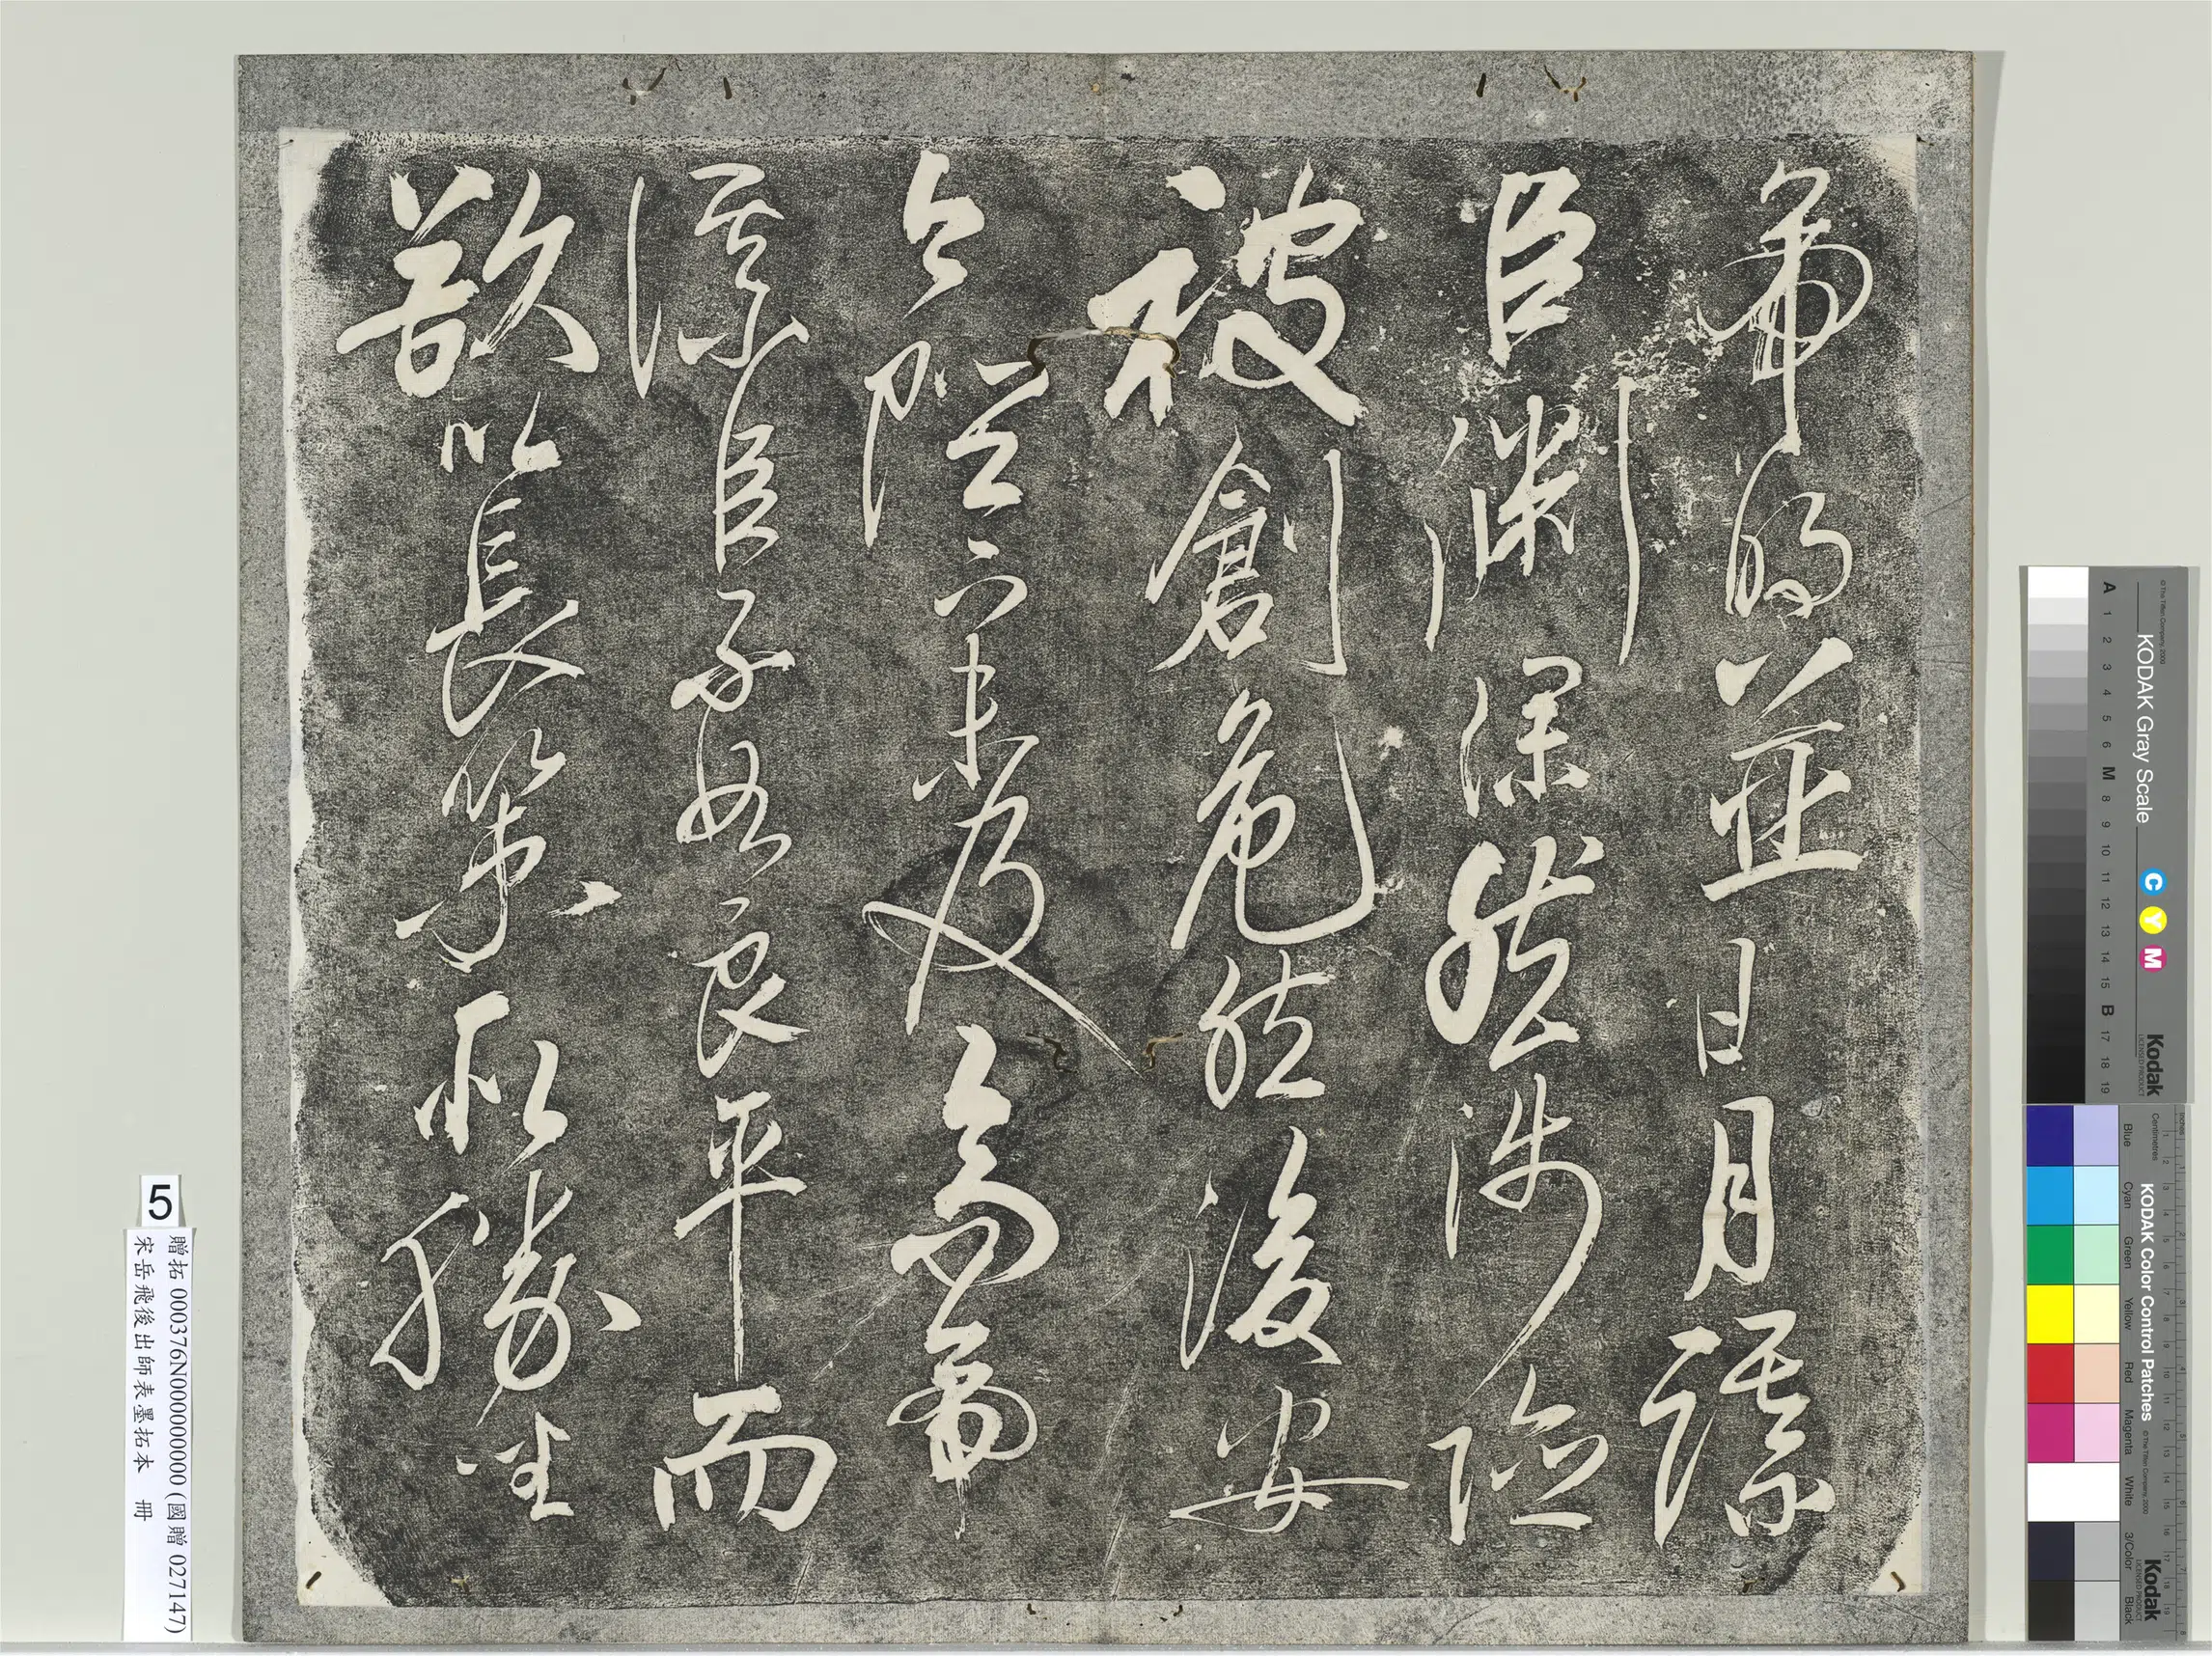 帝明並日月謀
臣淵深然涉險
被創危然後安
今陛下未及高帝
謀臣不如良平而
欲以長策取勝坐
5
贈拓 000376N000000000 (國贈 027147)
宋岳飛後出師表墨拓本 冊
KODAK Gray Scale
C Y M
Kodak
LICENSED PRODUCT
© The Tiffen Company, 2000
A 1 2 3 4 5 6 M 8 9 10 11 12 13 14 15 B 17 18 19
KODAK Color Control Patches
© The Tiffen Company, 2000
Kodak
LICENSED PRODUCT
Inches
Centimetres
Blue Cyan Green Yellow Red Magenta White 3/Color Black